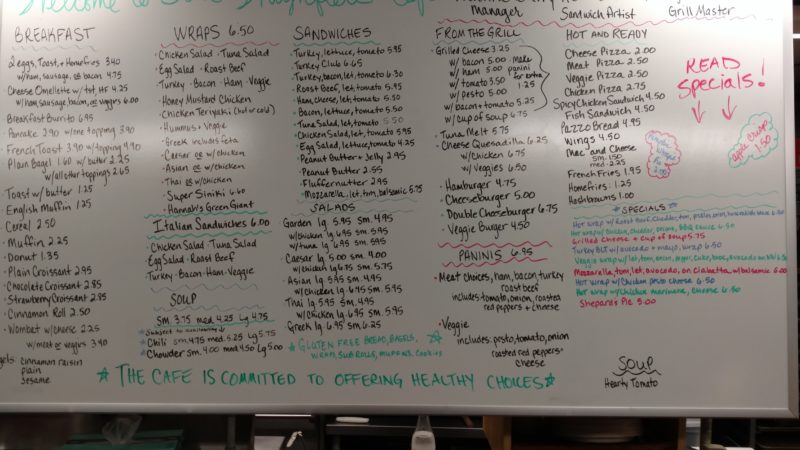 Welcome to
Manager
Sandwich Artist
Grill Master
BREAKFAST
2 eggs, Toast + Homefries 3.40
w/ham, sausage, or bacon 4.75
Cheese Omellette w/tst, HF 4.25
w/ham, sausage, bacon, or veggies 6.00
Breakfast Burrito 6.95
Pancake 2.90 w/one topping 3.90
French Toast 3.90 w/topping 4.90
Plain Bagel 1.60 w/butter 2.25
w/all other toppings 2.65
Toast w/butter 1.25
English Muffin 1.25
Cereal 2.50
Muffin 2.25
Donut 1.35
Plain Croissant 2.95
Chocolate Croissant 2.85
Strawberry Croissant 2.85
Cinnamon Roll 2.50
Wombat w/cheese 2.25
w/meat or veggies 3.40
cinnamon raisin
plain
sesame
WRAPS 6.50
Chicken Salad · Tuna Salad
Egg Salad · Roast Beef
Turkey · Bacon · Ham · Veggie
Honey Mustard Chicken
Chicken Teriyaki (hot or cold)
Hummus + Veggie
Greek includes feta
Caesar or w/chicken
Asian or w/chicken
Thai or w/chicken
Super Siniki 6.60
Hannah's Green Giant
Italian Sandwiches 6.00
Chicken Salad · Tuna Salad
Egg Salad · Roast Beef
Turkey · Bacon · Ham · Veggie
SOUP
Sm 3.75 med. 4.25 Lg 4.75
Subject to availability
Chili sm 4.75 med. 5.25 Lg 5.75
Chowder sm. 4.00 med 4.50 Lg 5.00
SANDWICHES
Turkey, lettuce, tomato 5.95
Turkey Club 6.65
Turkey, bacon, let, tomato 6.30
Roast Beef, let, tomato 5.95
Ham, cheese, let, tomato 5.50
Bacon, lettuce, tomato 5.50
Tuna Salad, let, tomato 5.50
Chicken Salad, let, tomato 5.95
Egg Salad, lettuce, tomato 4.25
Peanut Butter + Jelly 2.95
Peanut Butter 2.55
Fluffernutter 2.95
Mozzarella, let, tom, balsamic 5.75
SALADS
Garden lg 5.95 sm. 4.95
w/chicken lg 6.95 sm. 5.95
w/tuna lg 6.95 sm. 5.95
Caesar lg 5.00 sm. 4.00
w/chicken lg 6.75 sm. 5.75
Asian lg 5.95 sm. 4.95
w/chicken lg 6.75 sm 5.95
Thai lg 5.95 sm. 4.95
w/chicken lg 6.95 sm 5.95
Greek lg 6.95 sm 6.25
GLUTEN FREE BREAD, BAGELS,
WRAPS, SUB ROLLS, MUFFINS, Cookies
FROM THE GRILL
Grilled Cheese 3.25
w/bacon 5.00
w/ham 5.00
w/tomato 3.50
w/pesto 5.00
w/bacon + tomato 5.25
w/cup of soup 6.75
make panini for extra 1.25
Tuna Melt 5.75
Cheese Quesadilla 6.25
w/chicken 6.75
w/veggies 6.50
Hamburger 4.75
Cheeseburger 5.00
Double Cheeseburger 6.75
Veggie Burger 4.50
PANINIS 6.95
Meat choices, ham, bacon, turkey
roast beef
includes tomato, onion, roasted
red peppers + cheese
Veggie
includes: pesto, tomato, onion
roasted red peppers +
cheese
HOT AND READY
Cheese Pizza 2.00
Meat Pizza 2.50
Veggie Pizza 2.50
Chicken Pizza 2.75
Spicy Chicken Sandwich 4.50
Fish Sandwich 4.50
Pazzo Bread 4.95
Wings 4.50
Mac and Cheese
sm. 1.50
med. 2.25
French Fries 1.95
Homefries: 1.25
Hashbrowns 1.00
READ
Specials!
Apple Crisp
1.50
*SPECIALS*
Grilled Cheese + Cup of Soup 5.75
Turkey BLT w/avocado + mayo, wrap 6.50
Mozzarella, tom, let, avocado, on Ciabatta, w/balsamic 6.00
Hot wrap w/Chicken pesto cheese 6.50
Hot Wrap w/Chicken marinara, Cheese 6.50
Shepard's Pie 5.00
SOUP
Hearty Tomato
THE CAFE IS COMMITTED TO OFFERING HEALTHY CHOICES